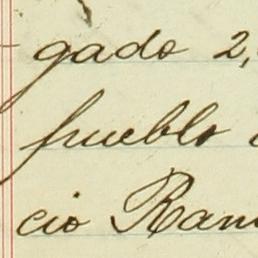 gado 2,
pueblo
cio Ram